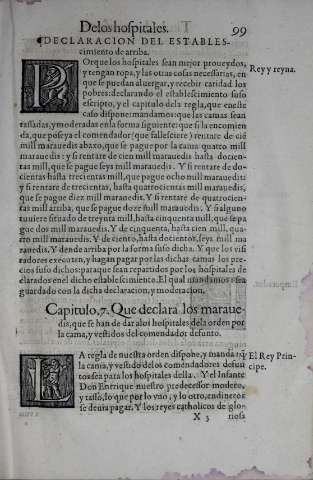 De los hospitales. 99
DECLARACION DEL ESTABLES-
cimiento de arriba.
POrque los hospitales sean mejor proueydos,
Rey y reyna.
y tengan ropa, y las otras cosas necessarias, en
que se puedan aluergar, y recebir caridad los
pobres: declarando el establescimiento suso
escripto, y el capitulo dela regla, que eneste
caso dispone: mandamos: que las camas sean
tassadas, y moderadas en la forma siguiente: que si la encomien
da, que posseya el comendador (que fallesciere) rentare de cië
mill marauedis abaxo, que se pague por la cama quatro mill
marauedis: y si rentare de cien mill marauedis hasta dozien-
tas mill, que se pague seys mill marauedis. Y si rentare de do-
cientas hasta trecientas mill, que pague ocho mill marauedis:
y si rentare de trecientas, hasta quatrocientas mill marauedis,
que se pague diez mill marauedis. Y si rentare de quatrocien-
tas mill arriba, que se pague doze mill marauedis. Y si alguno
tuuiere situado de treynta mill, hasta cinquenta mill, que se pa
gue dos mill marauedis. Y de cinquenta, hasta cien mill, qua-
tro mill marauedis. Y de ciento, hasta docientos, seys mill ma
rauedis. Y dende arriba por la forma suso dicha. Y que los visi
tadores executen, y hagan pagar por las dichas camas los pre-
cios suso dichos: paraque sean repartidos por los hospitales de
clarados enel dicho establescimiento. El qual mandamos sea
guardado con la dicha declaracion, y moderacion.
Capitulo. 7. Que declara los maraue-
dis, que se han de dar alos hospitales dela orden por
la cama, y vestidos del comendador defunto.
LA regla de nuestra orden dispone, y manda q̃
El Rey Prin-
la cama, y vestidos de los comendadores defun
cipe.
tos sea para los hospitales della. Y el Infante
Don Enrique nuestro predecessor modero,
y tassò, lo que por lo vno, y lo otro, en dineros
se deuia pagar. Y los reyes catholicos de glo-
X 3 riosa